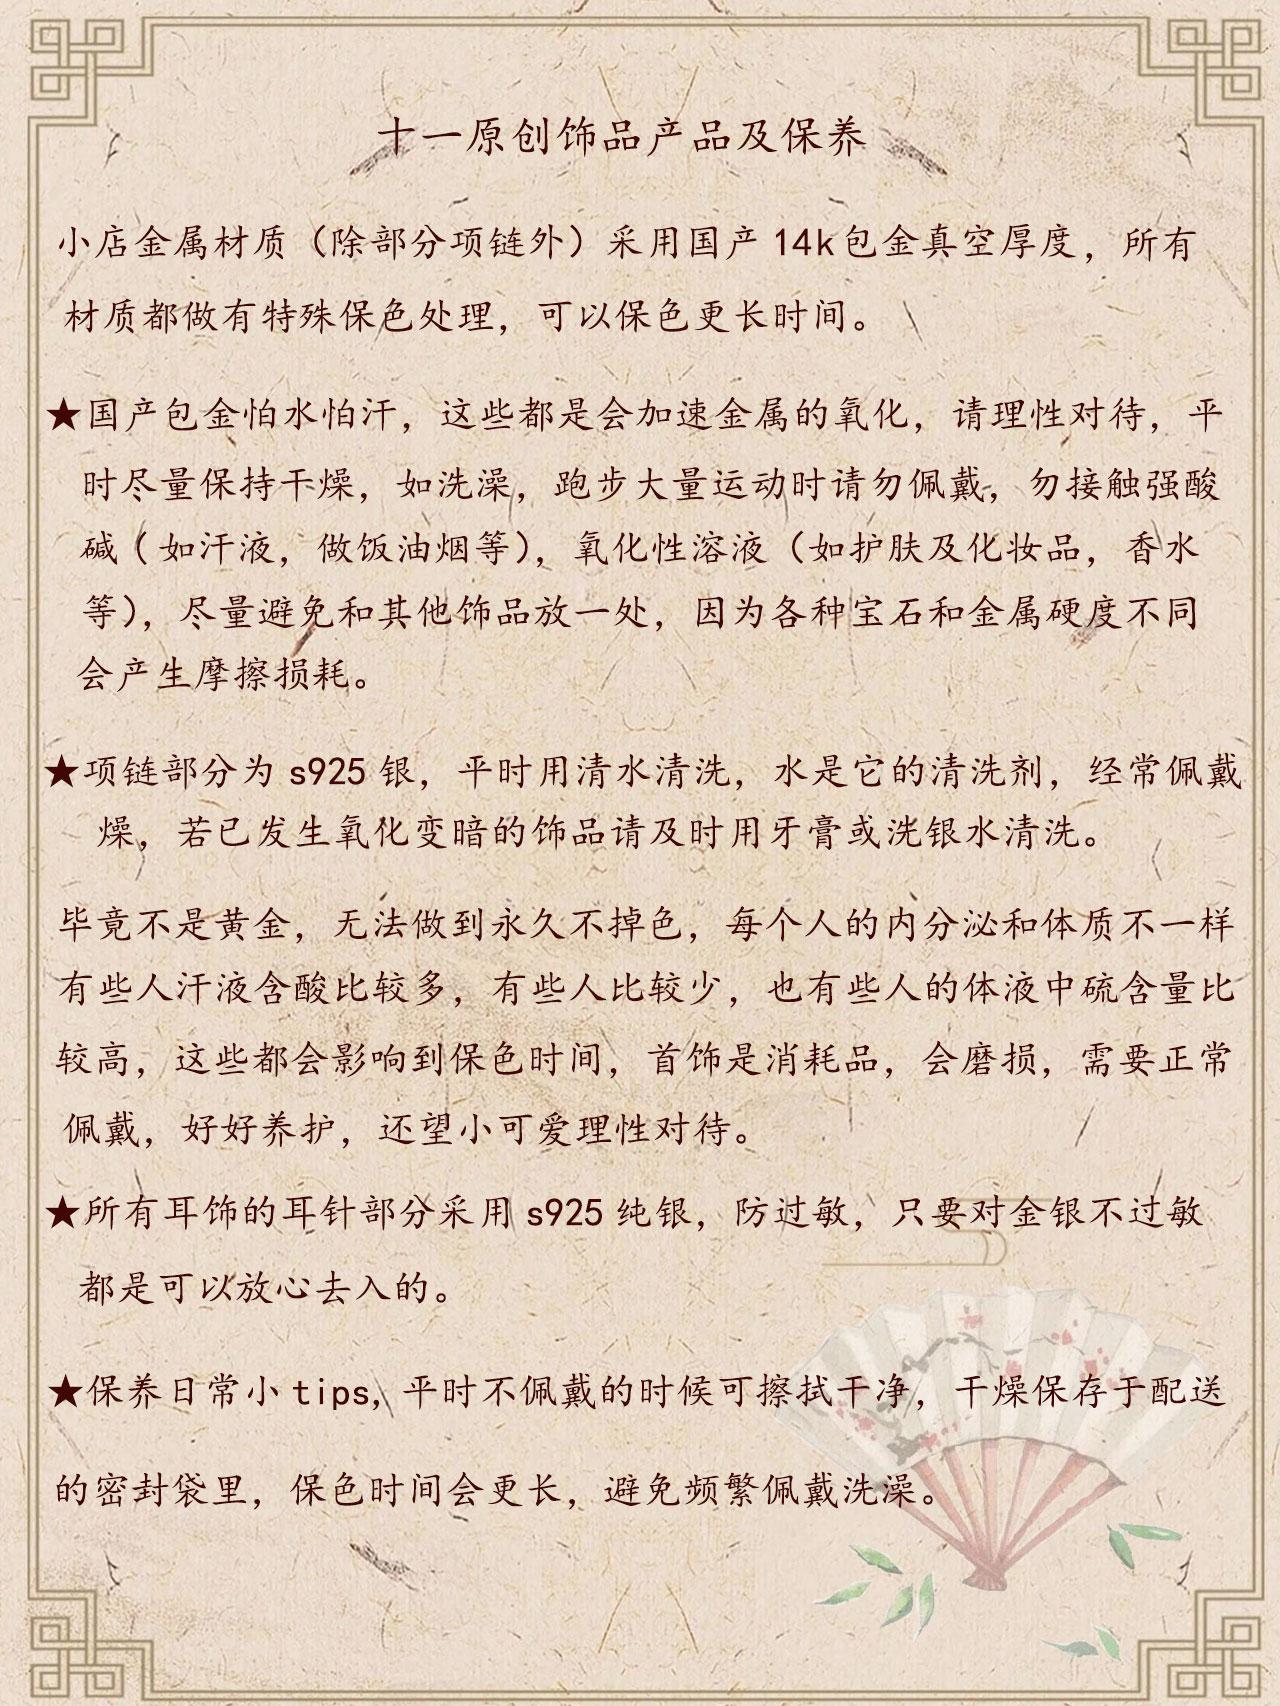 十一原创饰品产品及保养
小店金属材质（除部分项链外）采用国产14k包金真空厚度，所有
材质都做有特殊保色处理，可以保色更长时间。
★国产包金怕水怕汗，这些都是会加速金属的氧化，请理性对待，平
时尽量保持干燥，如洗澡，跑步大量运动时请勿佩戴，勿接触强酸
碱（如汗液，做饭油烟等），氧化性溶液（如护肤及化妆品，香水
等），尽量避免和其他饰品放一处，因为各种宝石和金属硬度不同
会产生摩擦损耗。
★项链部分为s925银，平时用清水清洗，水是它的清洗剂，经常佩戴
燥，若已发生氧化变暗的饰品请及时用牙膏或洗银水清洗。
毕竟不是黄金，无法做到永久不掉色，每个人的内分泌和体质不一样
有些人汗液含酸比较多，有些人比较少，也有些人的体液中硫含量比
较高，这些都会影响到保色时间，首饰是消耗品，会磨损，需要正常
佩戴，好好养护，还望小可爱理性对待。
★所有耳饰的耳针部分采用s925纯银，防过敏，只要对金银不过敏
都是可以放心去入的。
★保养日常小tips,平时不佩戴的时候可擦拭干净，干燥保存于配送
的密封袋里，保色时间会更长，避免频繁佩戴洗澡。